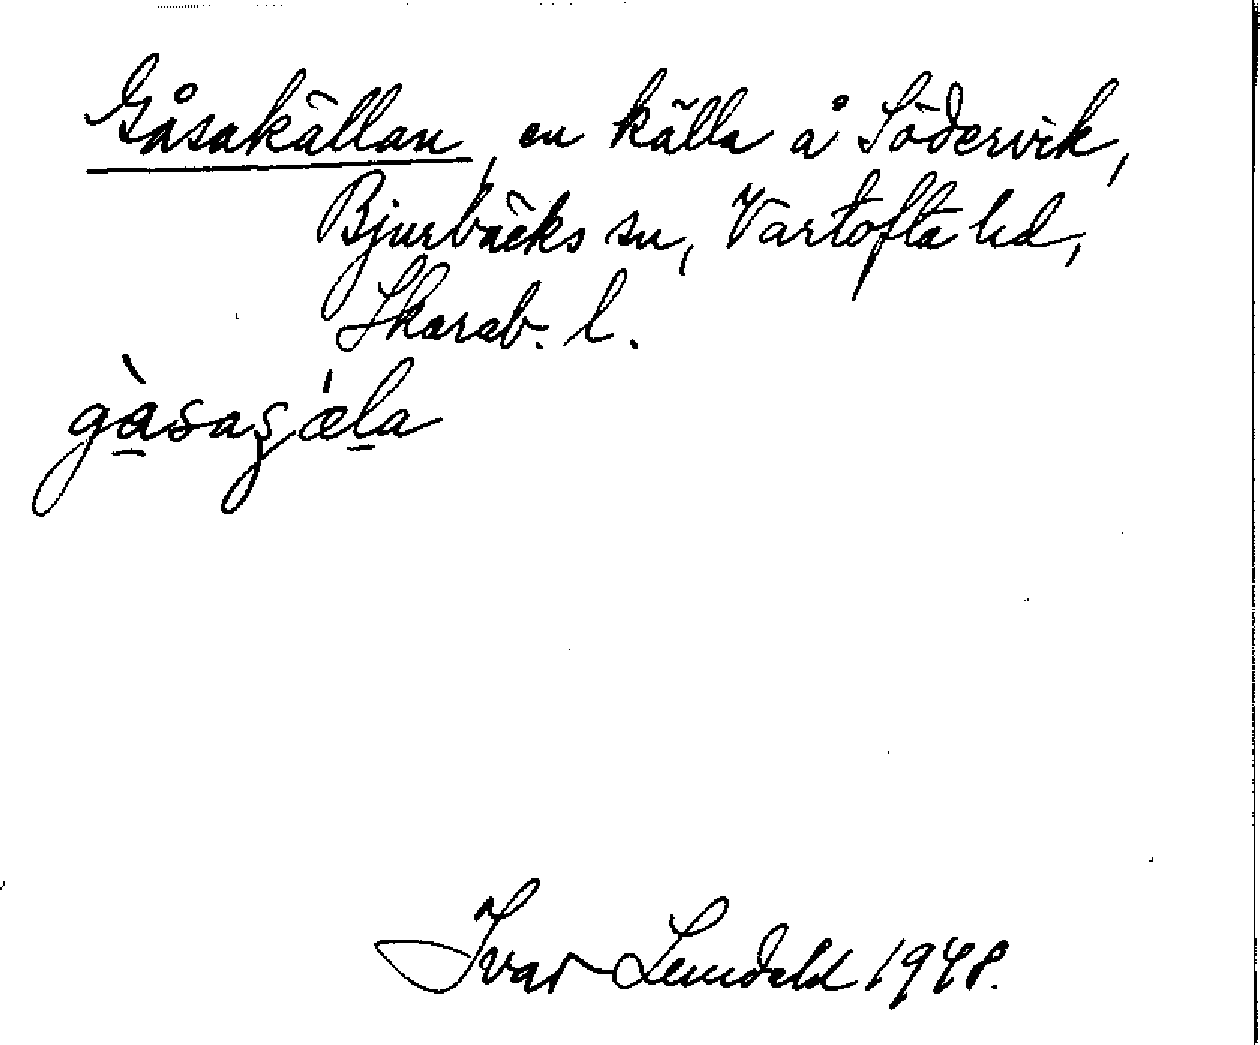 Gåsakällan, en källa å Södervik,
Bjurbäcks sn, Vartofta hd,
Skarab. l.
gàsaɕǽla
Ivar Lundahl 1948.